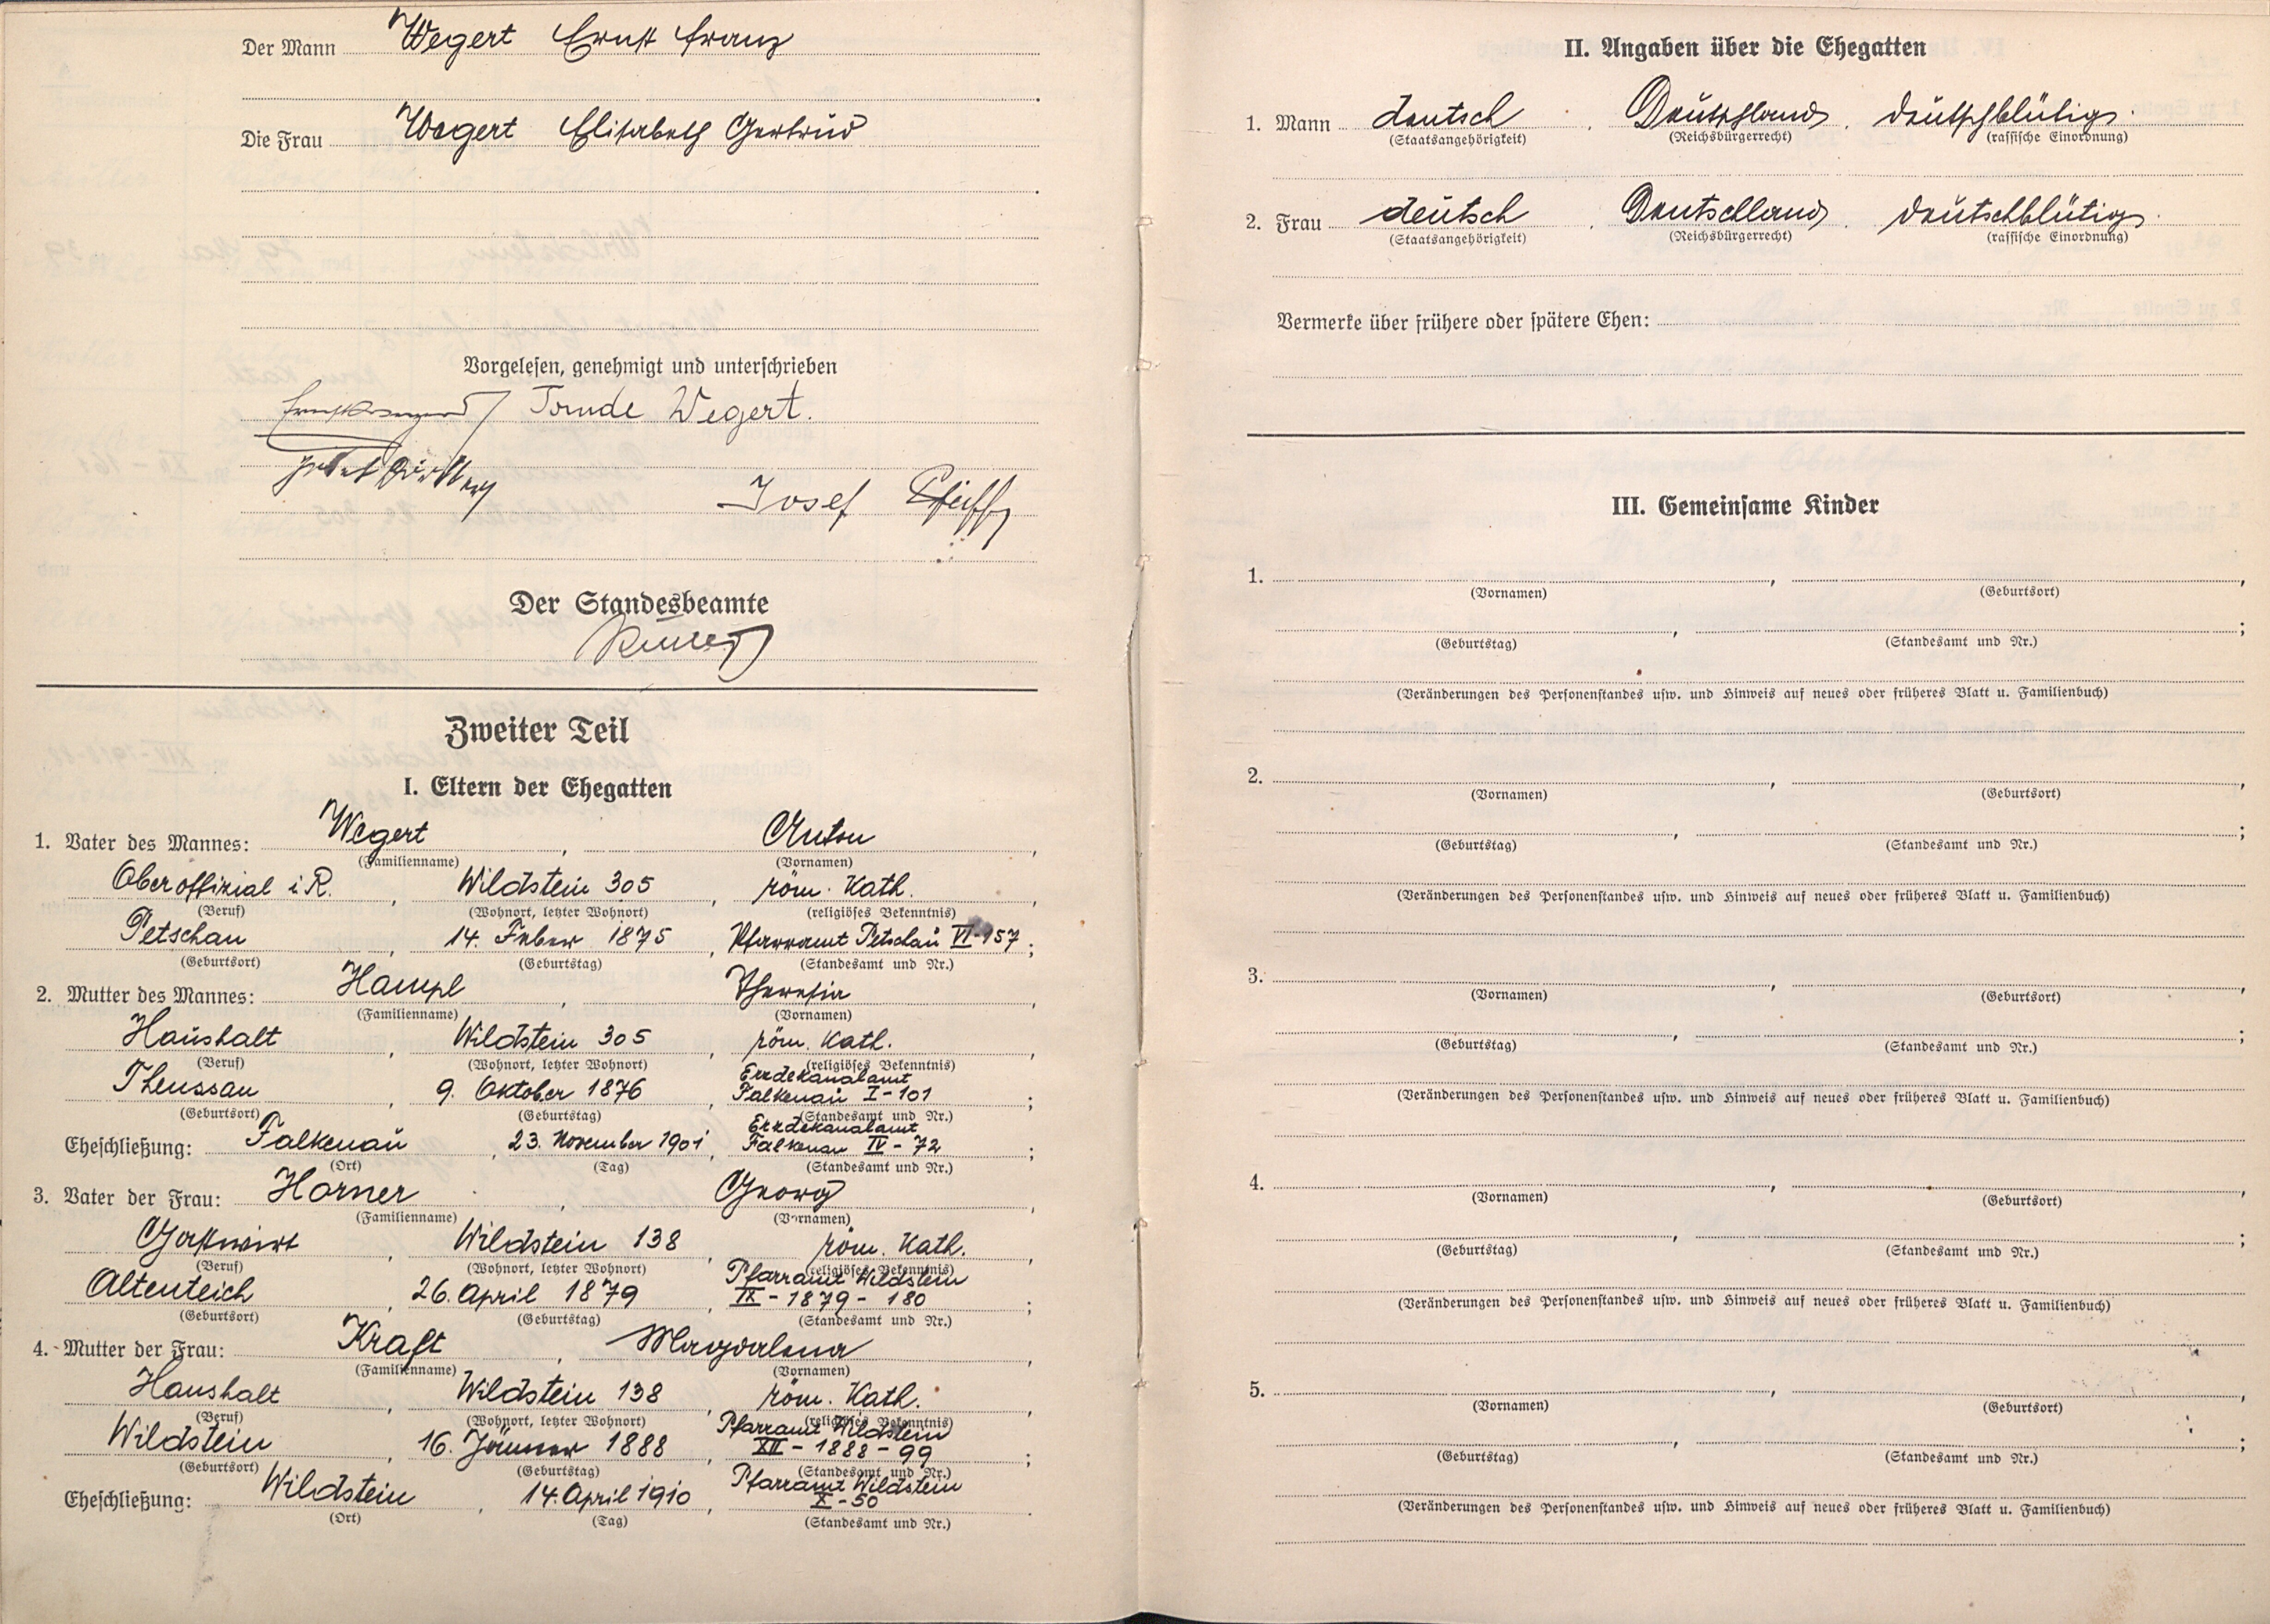 Der Mann Wegert Ernst Franz
Die Frau Wegert Elisabeth Gertrud
Vorgelesen, genehmigt und unterschrieben
Wegert.
Josef
Der Standesbeamte
Zweiter Teil
I. Eltern der Ehegatten
1. Vater des Mannes: Wegert, Anton,
(Familienname) (Vornamen)
Oberoffizial i R., Wildstein 305, röm. Kath.,
(Beruf) (Wohnort, letzter Wohnort) (religiöses Bekenntnis)
Petschau, 14. Feber 1875, Pfarramt Petschau VI-157;
(Geburtsort) (Geburtstag) (Standesamt und Nr.)
2. Mutter des Mannes: Hampl, Theresia,
(Familienname) (Vornamen)
Haushalt, Wildstein 305, röm. Kath.,
(Beruf) (Wohnort, letzter Wohnort) (religiöses Bekenntnis)
Erzdekanalamt
Theussau, 9. Oktober 1876, Falkenau I-101;
(Geburtsort) (Geburtstag) (Standesamt und Nr.)
Erzdekanalamt
Eheschließung: Falkenau, 23. November 1901, Falkenau IV-72;
(Ort) (Tag) (Standesamt und Nr.)
3. Vater der Frau: Horner, Georg,
(Familienname) (Vornamen)
Gastwirt, Wildstein 138, röm. Kath.,
(Beruf) (Wohnort, letzter Wohnort) (religiöses Bekenntnis)
Pfarramt Wildstein
Altenteich, 26. April 1879, IX-1879-180;
(Geburtsort) (Geburtstag) (Standesamt und Nr.)
4. Mutter der Frau: Kraft, Magdalena,
(Familienname) (Vornamen)
Haushalt, Wildstein 138, röm. Kath.,
(Beruf) (Wohnort, letzter Wohnort) (religiöses Bekenntnis)
Pfarramt Wildstein
Wildstein, 16. Jänner 1888, XII-1888-99;
(Geburtsort) (Geburtstag) (Standesamt und Nr.)
Pfarramt Wildstein
Eheschließung: Wildstein, 14. April 1910, X-50.
(Ort) (Tag) (Standesamt und Nr.)
II. Angaben über die Ehegatten
1. Mann deutsch. Deutschland. deutschblütig.
(Staatsangehörigkeit) (Reichsbürgerrecht) (rassische Einordnung)
2. Frau deutsch. Deutschland. deutschblütig.
(Staatsangehörigkeit) (Reichsbürgerrecht) (rassische Einordnung)
Vermerke über frühere oder spätere Ehen:
III. Gemeinsame Kinder
1. , ,
(Vornamen) (Geburtsort)
, ;
(Geburtstag) (Standesamt und Nr.)
(Veränderungen des Personenstandes usw. und Hinweis auf neues oder früheres Blatt u. Familienbuch)
2. , ,
(Vornamen) (Geburtsort)
, ;
(Geburtstag) (Standesamt und Nr.)
(Veränderungen des Personenstandes usw. und Hinweis auf neues oder früheres Blatt u. Familienbuch)
3. , ,
(Vornamen) (Geburtsort)
, ;
(Geburtstag) (Standesamt und Nr.)
(Veränderungen des Personenstandes usw. und Hinweis auf neues oder früheres Blatt u. Familienbuch)
4. , ,
(Vornamen) (Geburtsort)
, ;
(Geburtstag) (Standesamt und Nr.)
(Veränderungen des Personenstandes usw. und Hinweis auf neues oder früheres Blatt u. Familienbuch)
5. , ,
(Vornamen) (Geburtsort)
, ;
(Geburtstag) (Standesamt und Nr.)
(Veränderungen des Personenstandes usw. und Hinweis auf neues oder früheres Blatt u. Familienbuch)